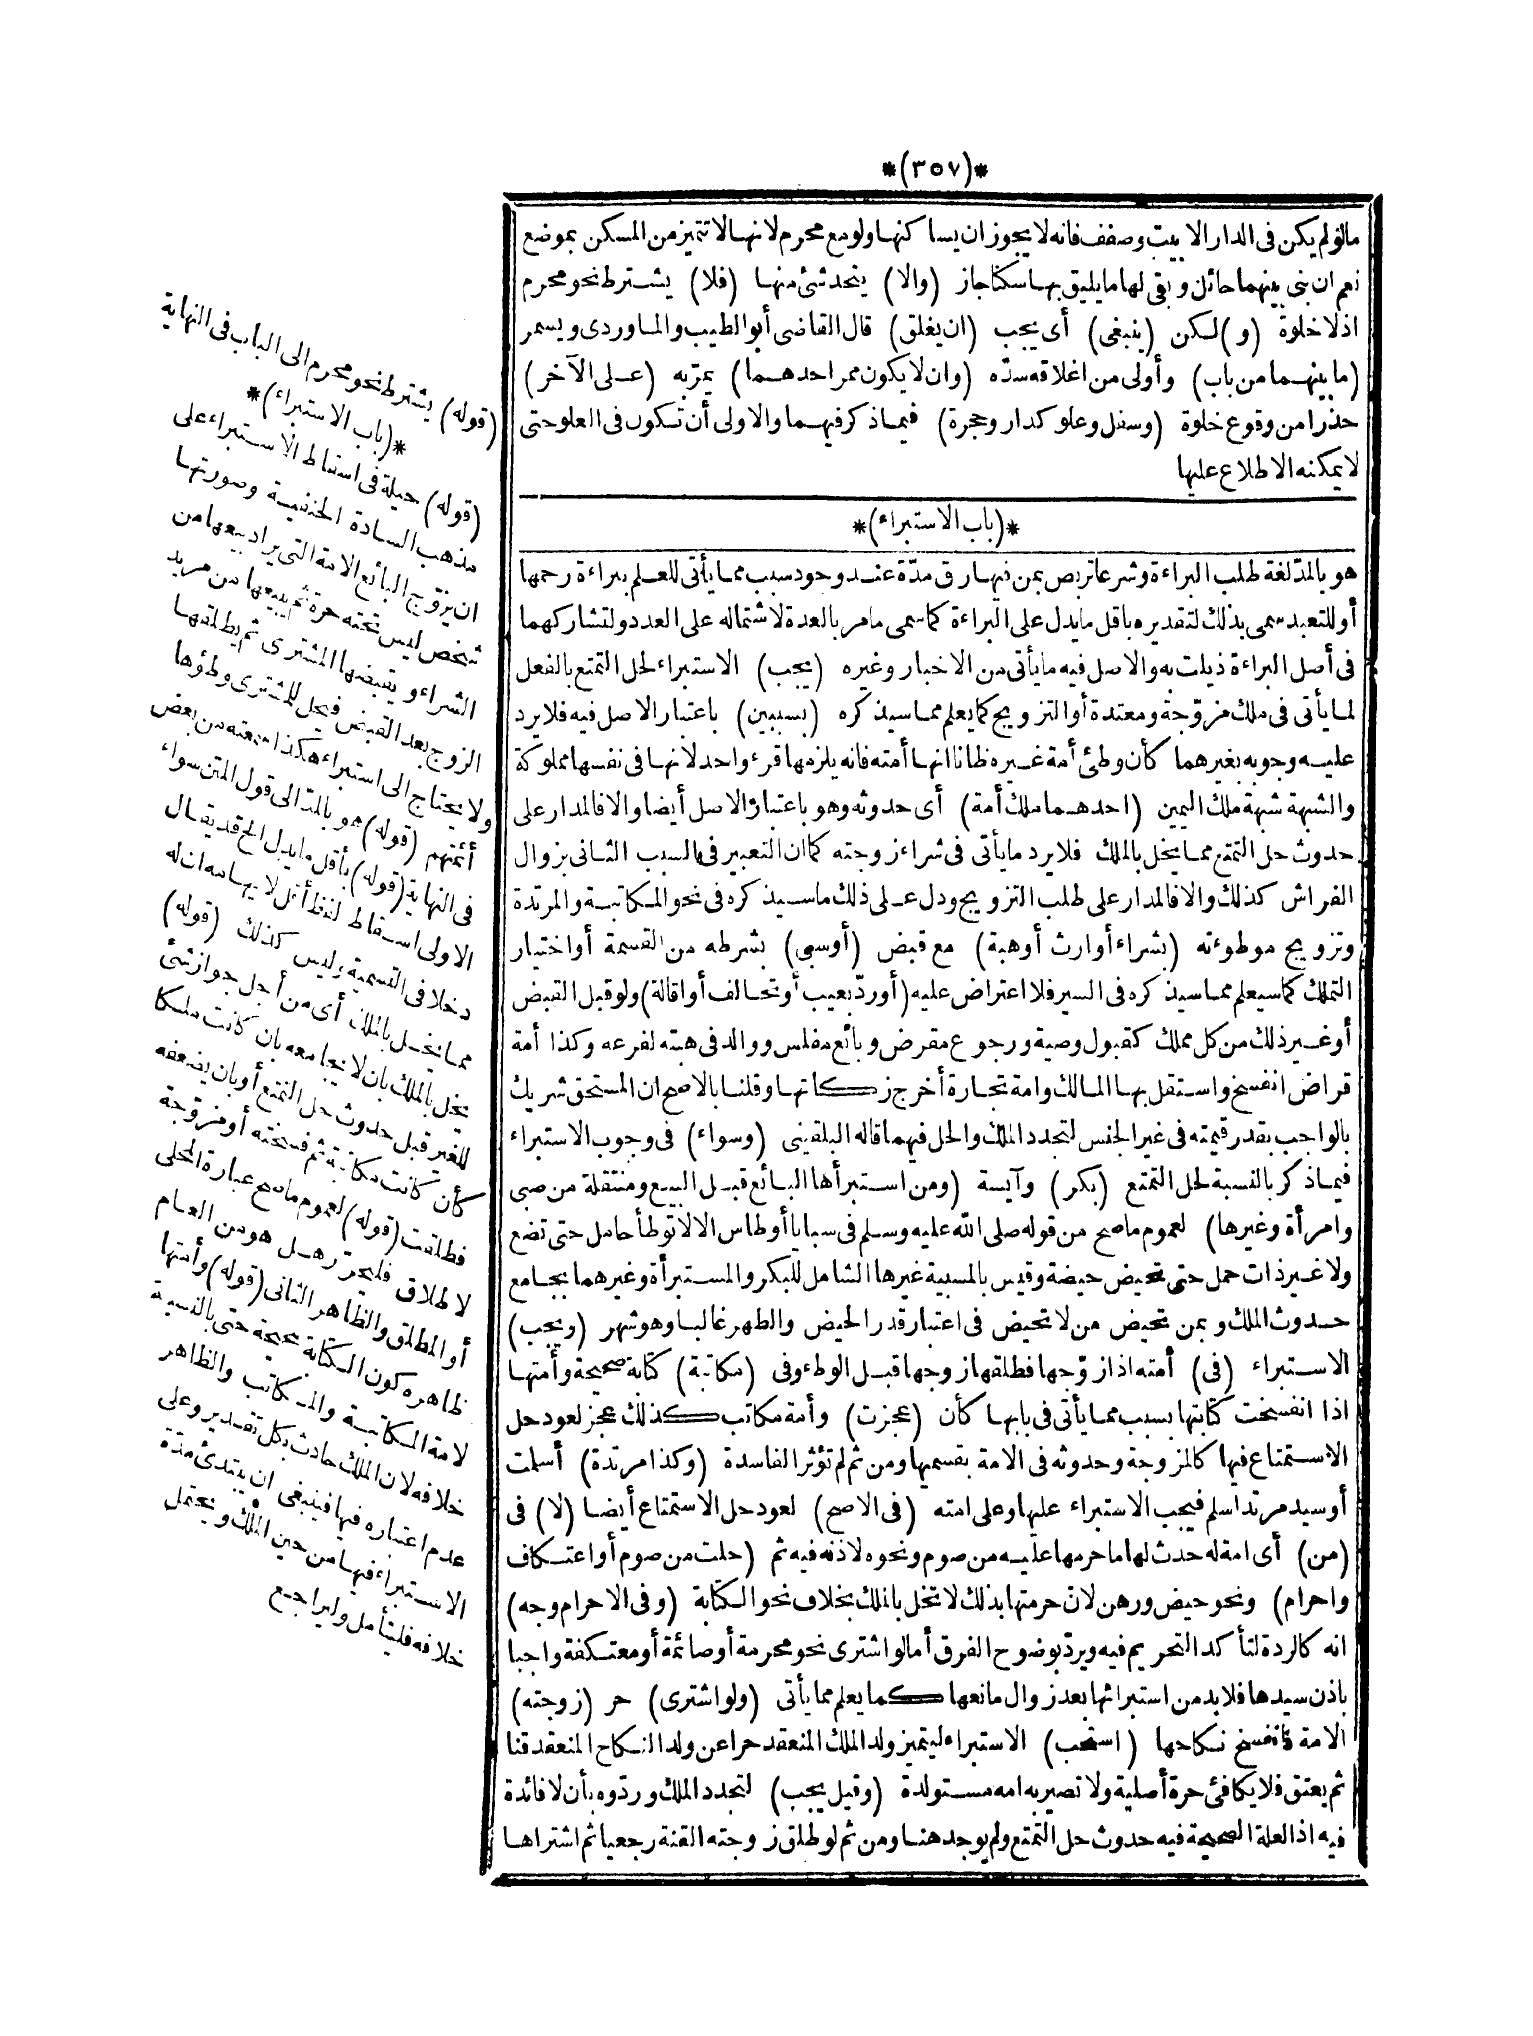 *(٣٥٧)*
مالو لم يكن في الدار الا بيت وصفف فانه لا يجوز ان يساكنها ولو مع محرم لانها لا تتميز من المسكن بموضع
نعم ان بنى بينهما حائل وبقى لها ما يليق بها سكنا جاز (والا) يتحد شئ منها (فلا) يشترط نحو محرم
اذ لا خلوة (و) لكن (ينبغى) أى يجب (ان يغلق) قال القاضى أبو الطيب والماوردى ويسمر
(ما بينهما من باب) وأولى من اغلاقه سدّه (وان لا يكون ممر احدهما) يمرّ به (على الآخر)
حذرا من وقوع خلوة (وسفل وعلو كدار وحجرة) فيما ذكر فيهما والاولى أن تكون فى العلو حتى
لا يمكنه الاطلاع عليها
*(باب الاستبراء)*
هو بالمدّ لغة طلب البراءة وشرعا تربص بمن فيها رق مدّة عند وجود سبب مما يأتى للعلم ببراءة رحمها
أو للتعبد سمى بذلك لتقديره باقل ما يدل على البراءة كما سمى ما مر بالعدة لاشتماله على العدد ولتشاركهما
فى أصل البراءة ذيلت به والاصل فيه ما يأتى من الاخبار وغيره (يجب) الاستبراء لحل التمتع بالفعل
لما يأتى فى ملك مزوّجة ومعتدة أو التزويج كما يعلم مما سيذكره (بسببين) باعتبار الاصل فيه فلا يرد
عليه وجوبه بغيرهما كأن وطئ أمة غيره ظانا انها أمته فانه يلزمها قرء واحد لانها فى نفسها مملوكة
والشبهة شبهة ملك اليمين (احدهما ملك أمة) أى حدوثه وهو باعتبار الاصل أيضا والا فالمدار على
حدوث حل التمتع مما يخل بالملك فلا يرد ما يأتى فى شراء زوجته كما ان التعبير فى السبب الثانى بزوال
الفراش كذلك والا فالمدار على طلب التزويج ودل على ذلك ما سيذكره فى نحو المكاتبة والمرتدة
وتزويج موطوءته (بشراء أو ارث أو هبة) مع قبض (أو سبى) بشرطه من القسمة أو اختيار
التملك كما سيعلم مما سيذكره فى السير فلا اعتراض عليه (أو ردّ بعيب أو تحالف أو اقالة) ولو قبل القبض
أو غير ذلك من كل مملك كقبول وصية ورجوع مقرض وبائع مفلس ووالد فى هبته لفرعه وكذا أمة
قراض انفسخ واستقل بها المالك وامة تجارة أخرج زكاتها وقلنا بالاصح ان المستحق شريك
بالواجب بقدر قيمته فى غير الجنس لتجدد الملك والحل فيهما قاله البلقينى (وسواء) فى وجوب الاستبراء
فيما ذكر بالنسبة لحل التمتع (بكر) وآيسة (ومن استبرأها البائع قبل البيع ومنتقلة من صبى
وامرأة وغيرها) لعموم ما صح من قوله صلى الله عليه وسلم فى سبايا أوطاس الا لا توطأ حامل حتى تضع
ولا غير ذات حمل حتى تحيض حيضة وقيس بالمسبية غيرها الشامل للبكر والمستبرأة وغيرهما بجامع
حدوث الملك وبمن تحيض من لا تحيض فى اعتبار قدر الحيض والطهر غالبا وهو شهر (ويجب)
الاستبراء (فى) أمته اذا زوّجها فطلقها زوجها قبل الوطء وفى (مكاتبة) كتابة صحيحة وأمتها
اذا انفسخت كتابتها بسبب مما يأتى فى بابها كأن (عجزت) وأمة مكاتب كذلك عجز لعود حل
الاستمتاع فيها كالمزوجة وحدوثه فى الامة بقسميها ومن ثم لم تؤثر الفاسدة (وكذا مرتدة) أسلمت
أو سيد مرتد اسلم فيجب الاستبراء عليها وعلى امته (فى الاصح) لعود حل الاستمتاع أيضا (لا) فى
(من) أى امة له حدث لها ما حرمها عليه من صوم ونحوه لاذنه فيه ثم (حلت من صوم أو اعتكاف
واحرام) ونحو حيض ورهن لان حرمتها بذلك لا تخل بالملك بخلاف نحو الكتابة (وفى الاحرام وجه)
انه كالردة لتأكد التحريم فيه ويردّ بوضوح الفرق أما لو اشترى نحو محرمة أو صائمة أو معتكفة واجبا
باذن سيدها فلا بد من استبرائها بعد زوال مانعها كما يعلم مما يأتى (ولو اشترى) حر (زوجته)
الامة فانفسخ نكاحها (استحب) الاستبراء ليتميز ولد الملك المنعقد حرا عن ولد النكاح المنعقد قنا
ثم يعتق فلا يكافئ حرة أصلية ولا تصير به امه مستولدة (وقيل يجب) لتجدد الملك وردّوه بأن لا فائدة
فيه اذ العلة الصحيحة فيه حدوث حل التمتع ولم يوجد هنا ومن ثم لو طلق زوجته القنة رجعيا ثم اشتراها
(قوله) يشترط نحو محرم الى الباب فى النهاية
*(باب الاستبراء)*
(قوله) حيلة فى اسقاط الاستبراء على
مذهب السادة الحنفية وصورتها
ان يزوّج البائع الامة التى يراد بيعها من
شخص ليس تحته حرة ثم يبيعها من مريد
الشراء ويقبضها المشترى ثم يطلقها
الزوج بعد القبض فيحل للمشترى وطؤها
ولا يحتاج الى استبراء هكذا سمعته من بعض
أئمتهم (قوله) هو بالمدّ الى قول المتن سواء
فى النهاية (قوله) بأقل ما يدل الخ قد يقال
الاولى اسقاط لفظ أقل لايهامه ان له
دخلا فى التسمية وليس كذلك (قوله)
مما يخل بالملك أى من أجل جواز شئ
يخل بالملك بان لا يجامعه بان كانت ملكا
للغير قبل حدوث حل التمتع أو بان يضعفه
كأن كانت مكاتبة ثم فسخته أو مزوّجة
فطلقت (قوله) لعموم ما صح عبارة المحلى
لاطلاق فليحرّر هل هو من العام
أو المطلق والظاهر الثانى (قوله) وأمتها
ظاهره كون الكتابة صحيحة حتى بالنسبة
لامة المكاتبة والمكاتب والظاهر
خلافه لان الملك حادث بكل تقدير وعلى
عدم اعتباره فيها فينبغى ان يبتدئ مدّة
الاستبراء فيها من حين الملك ويحتمل
خلافه فليتأمل وليراجع